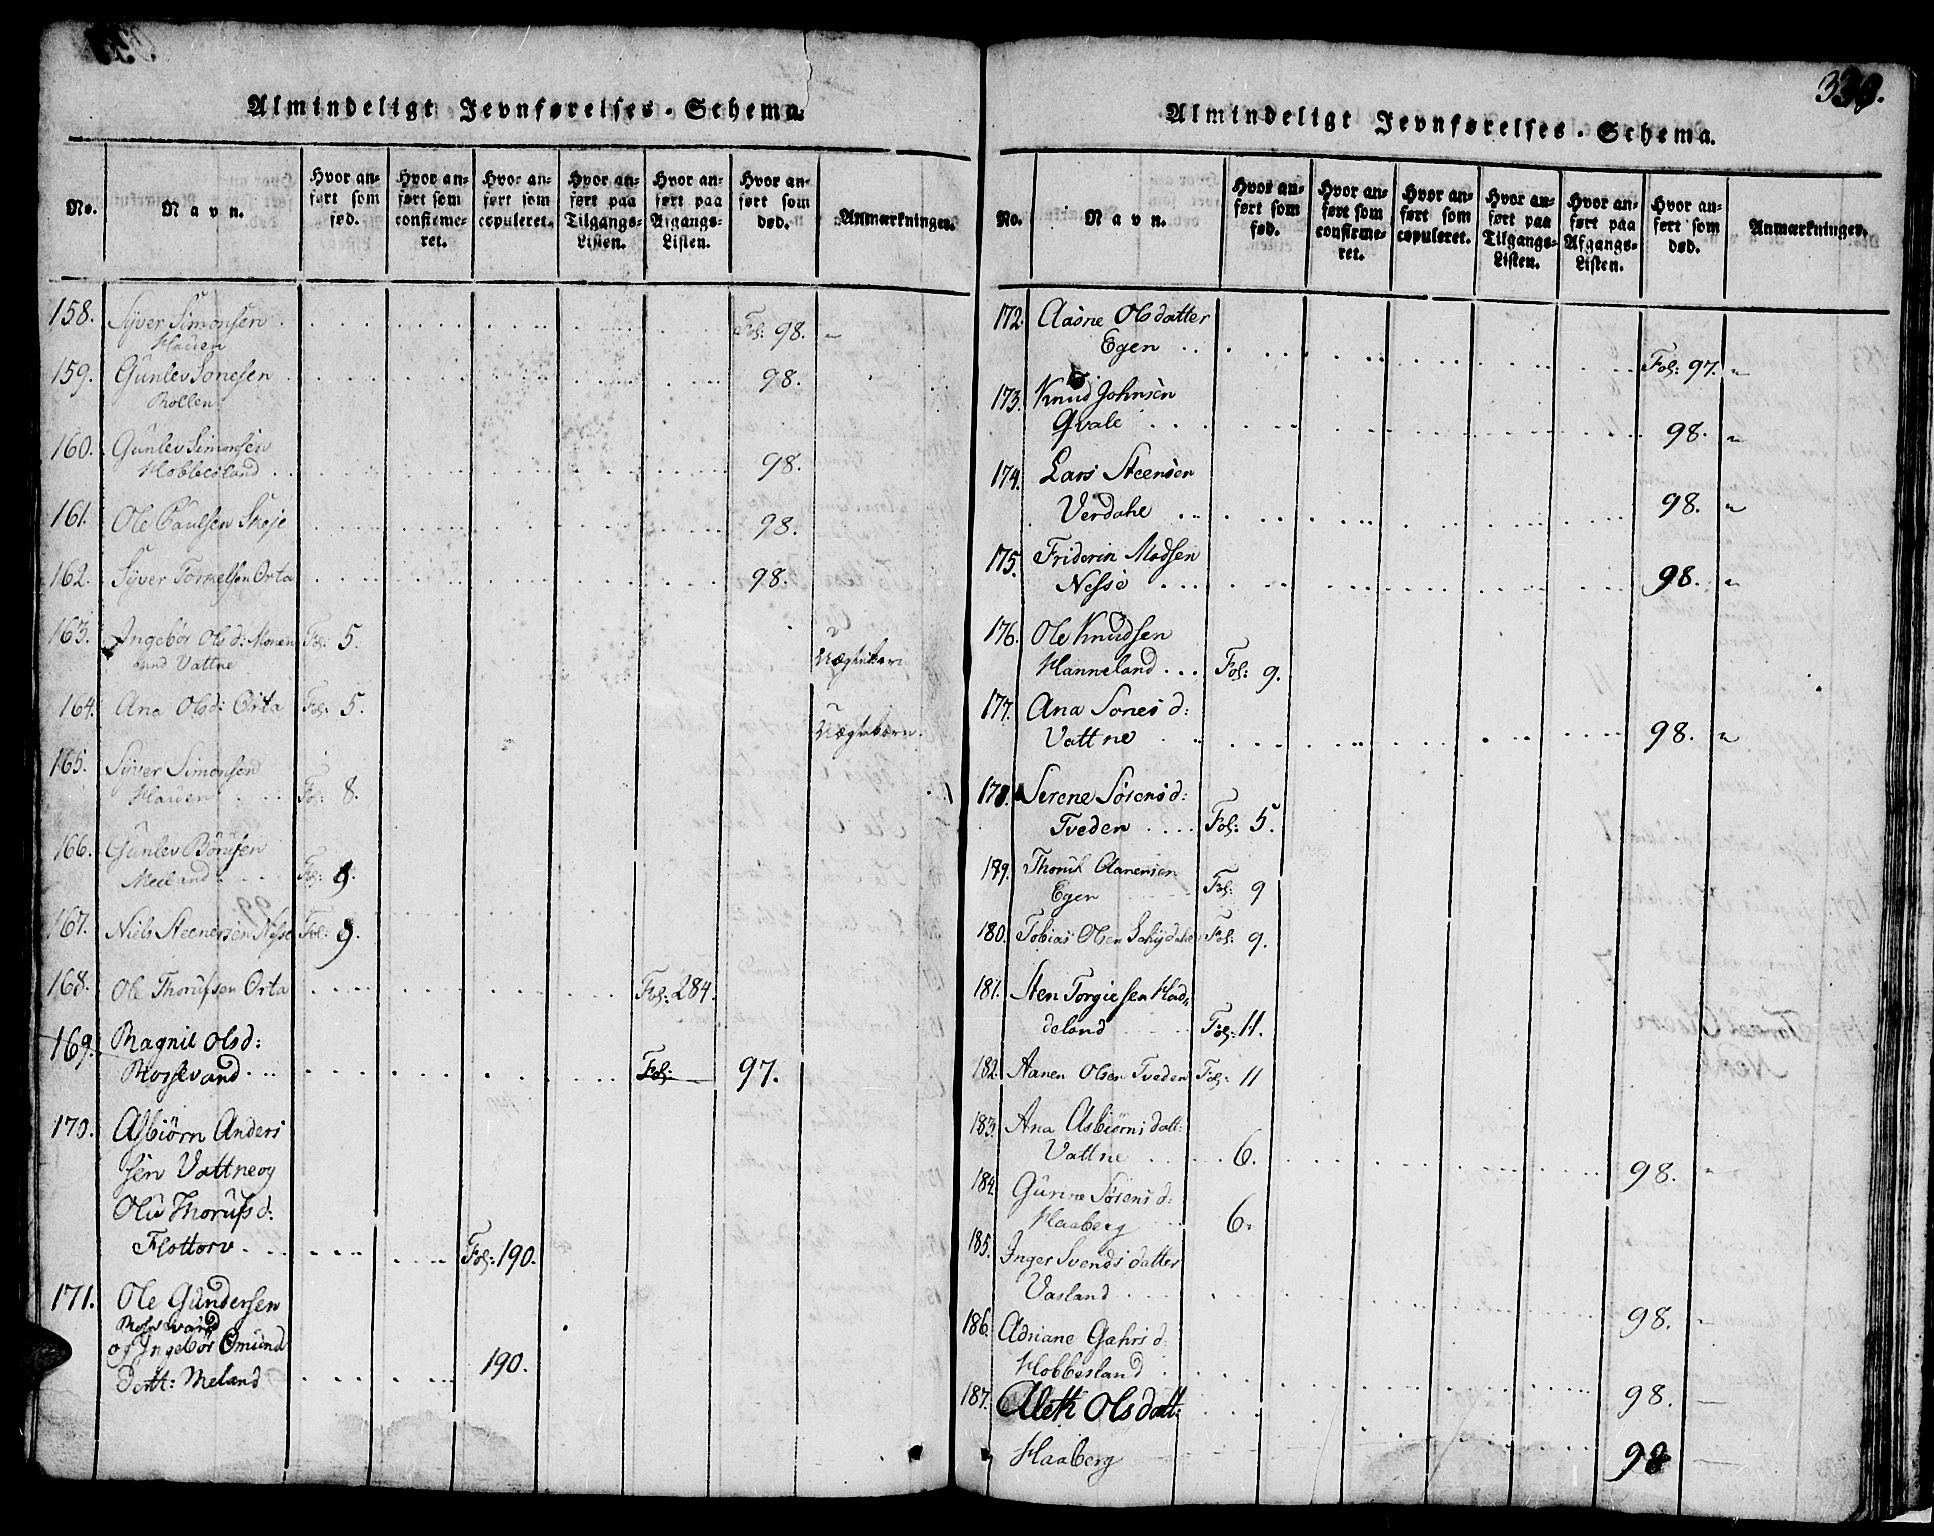 Almindeligt Jevnførelses-Schema.
No. Navn. Hvor anført som fød. Hvor anført som confirmeret. Hvor anført som copuleret. Hvor anført paa Tilgangs-Listen. Hvor anført paa Afgangs-Listen. Hvor anført som død. Anmærkninger.
158. Syver Simonsen
Hauen Fol: 98. "
159. Gunlev Sonesen
98.
160. Gunlev Simonsen
Hobbesland 98.
161. Ole Paulsen Skeje 98.
162. Syver Tormelsen Orta 98.
163. Ingebor Olsd: Fol: 5.
Vattne Uægtebarn
164. Ana Olsd: Orta Fol: 5. Uægtebarn.
165. Syver Simonsen
Hauen Fol: 8.
166. Gunlev
Meeland Fol: 9.
167. Niels Steenersen Nesse Fol: 9.
168. Ole Thorufsen Orta Fol: 284.
169. Ragnil Olsd:
Mossevand Fol: 97.
170. Asbiørn Anders
sen Vattne og
Thorufsd:
Flottorv Fol: 190.
171. Ole Gundersen
Mossevand
og Ingebor Omund
datt: Meland 190.
339.
Almindeligt Jevnførelses-Schema.
No. Navn. Hvor anført som fød. Hvor anført som confirmeret. Hvor anført som copuleret. Hvor anført paa Tilgangs-Listen. Hvor anført paa Afgangs-Listen. Hvor anført som død. Anmærkninger.
172. Aasne Olsdatter
Egen Fol: 97. "
173. Knud Johnsen
Qvale 98. "
174. Lars Steensen
Verdahe 98. "
175. Friderin Madsen
Nesse 98. "
176. Ole Knudsen
Hanneland Fol: 9.
177. Ana Sones d:
Vattne 98. "
178. Serene Sørens d:
Tveden Fol: 5.
179. Thoruf Aanensen
Egen Fol: 9
180. Tobias Olsen Fol: 9.
181. Sten Torgiesen Had,
deland Fol: 11.
182. Aanen Olsen Tveden Fol: 11
183. Ana Asbiørns datt:
Vattne 6. 98. "
184. Gunne Sørens d:
Haaberg 6.
185. Inger Svends datter
Vasland 98. "
186. Adriane Gahrs d:
Hobbesland 98. —
187. Aleth Olsdatt:
Haaberg 98 —